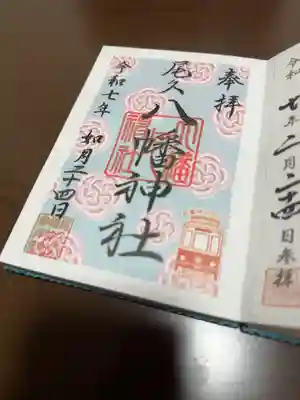 奉拝
尾久八幡神社
令和七年 如月二十四日
令和
七年二月二十四日参拝